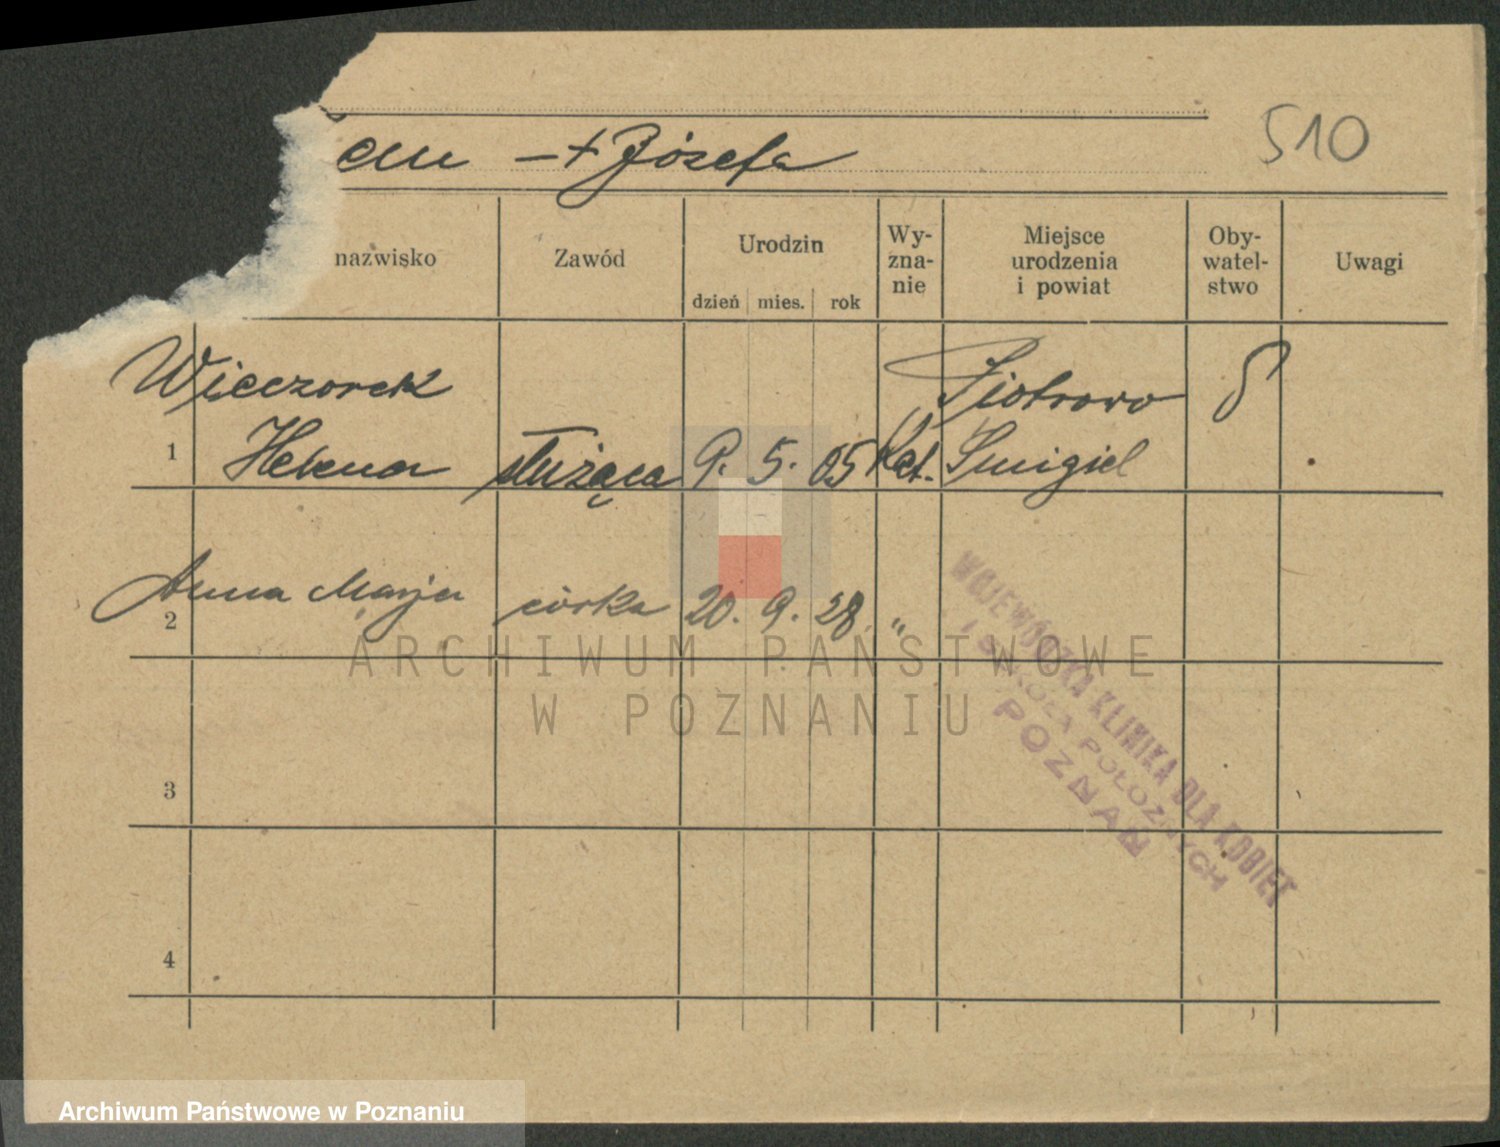 510
+ Józefa
nazwisko Zawód Urodzin Wy-zna-nie Miejsce urodzenia i powiat Oby-watel-stwo Uwagi
dzień mies. rok
Wieczorek Piotrowo
1 Helena służąca 9. 5. 05 Kat. Śmigiel
2 Anna Marja córka 20. 9. 28. "
3
4
WOJEWÓDZKA KLINIKA DLA KOBIET
I SZKOŁA POŁOŻNYCH
POZNAŃ
ARCHIWUM PAŃSTWOWE
W POZNANIU
Archiwum Państwowe w Poznaniu